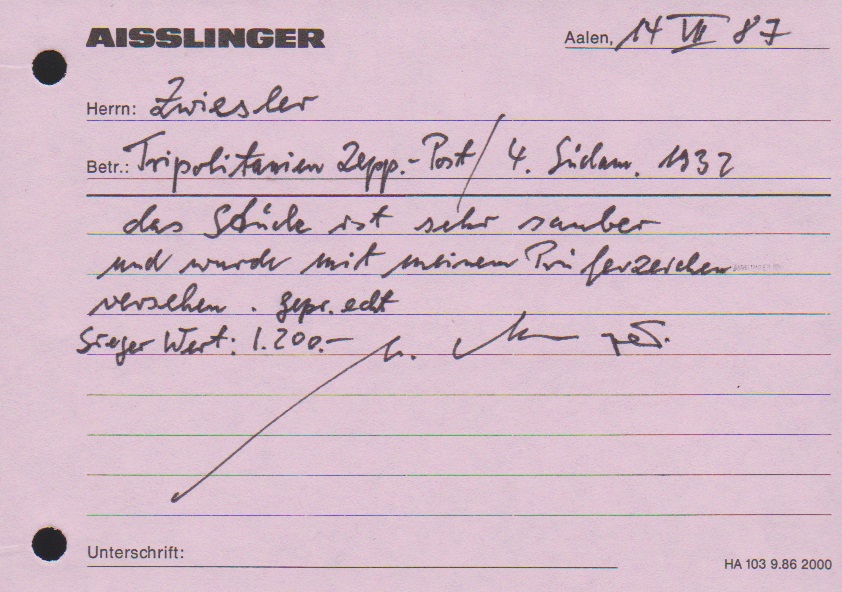 AISSLINGER
Aalen, 14 VII 87
Herrn: Zwiesler
Betr.: Tripolitanien Zepp.-Post / 4. Südam. 1932
das Stück ist sehr sauber
und wurde mit meinem Prüferzeichen
versehen. gepr. echt
Sieger Wert: 1.200.-
Unterschrift:
HA 103 9.86 2000